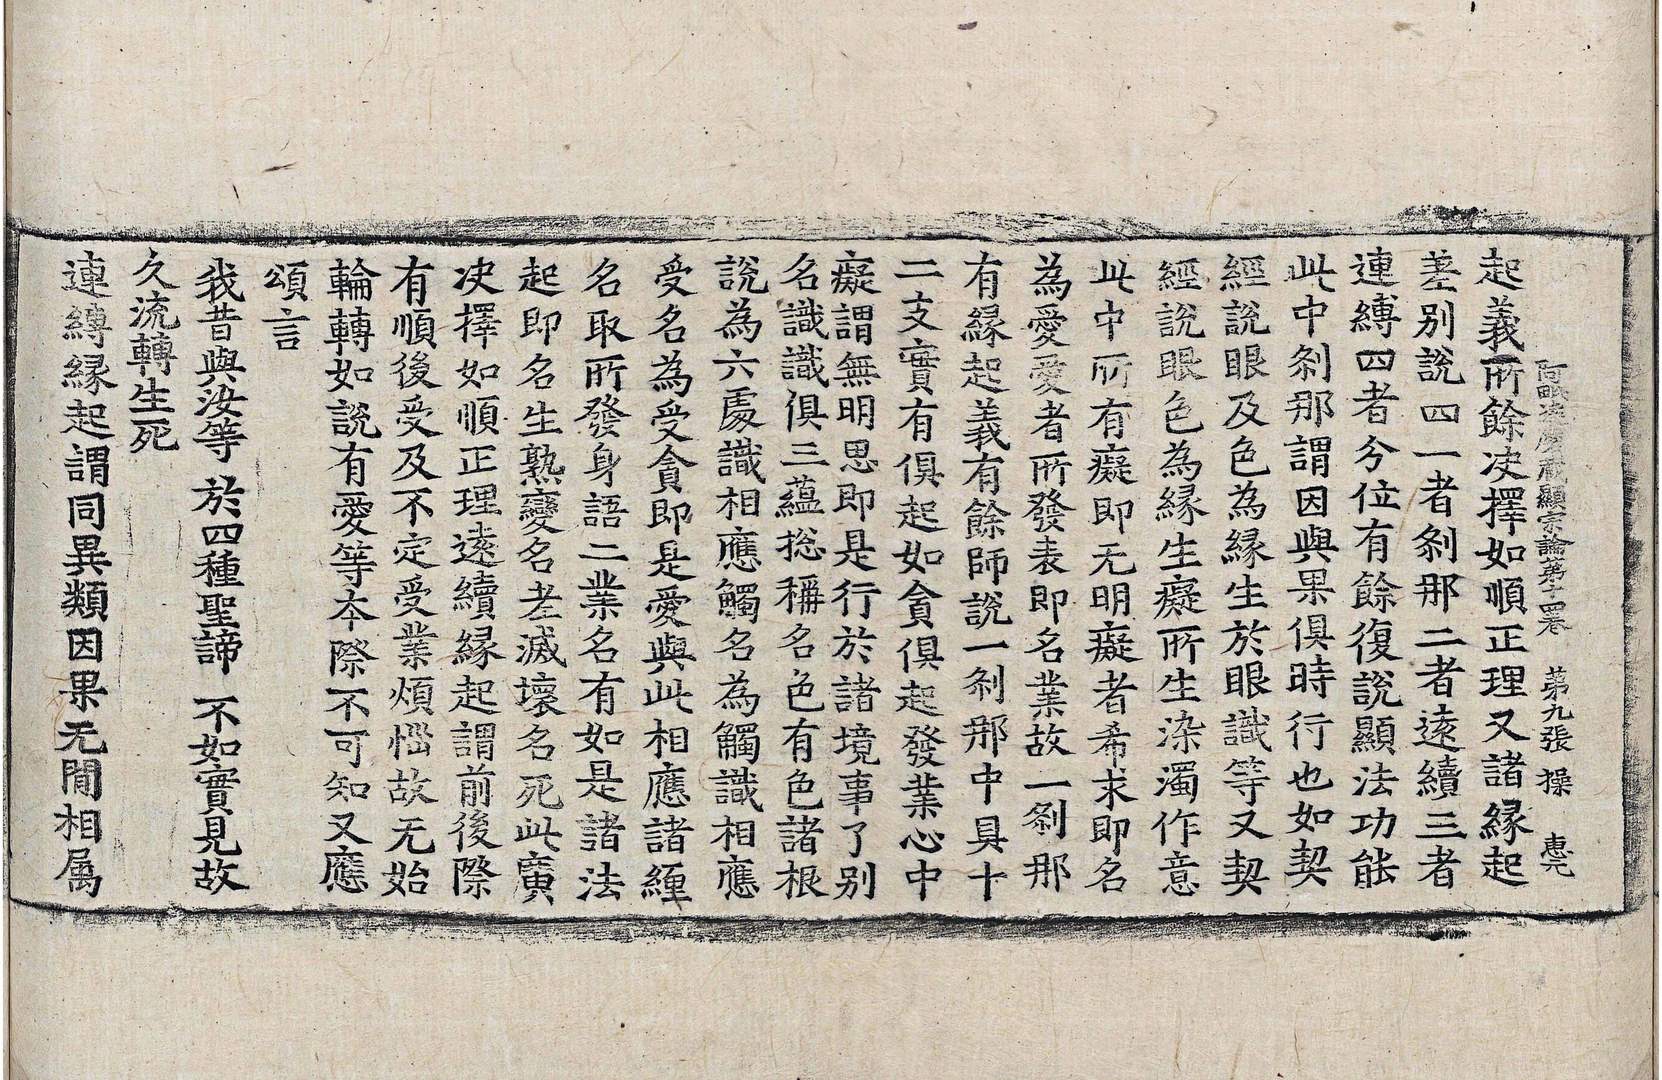 阿毗達磨藏顯宗論第十四卷 第九張 操 惠元
起義所餘决擇如順正理又諸緣起
差別說四一者剎那二者遠續三者
連縛四者分位有餘復說顯法功能
此中剎那謂因與果俱時行也如契
經說眼及色為緣生於眼識等又契
經說眼色為緣生癡所生染濁作意
此中所有癡即无明癡者希求即名
為愛愛者所發表即名業故一剎那
有緣起義有餘師說一剎那中具十
二支實有俱起如貪俱起發業心中
癡謂無明思即是行於諸境事了別
名識識俱三蘊捴稱名色有色諸根
說為六處識相應觸名為觸識相應
受名為受貪即是愛與此相應諸纏
名取所發身語二業名有如是諸法
起即名生熟變名老滅壞名死此廣
决擇如順正理遠續緣起謂前後際
有順後受及不定受業煩惱故无始
輪轉如說有愛等本際不可知又應
頌言
我昔與汝等 於四種聖諦 不如實見故
久流轉生死
連縛緣起謂同異類因果无間相属